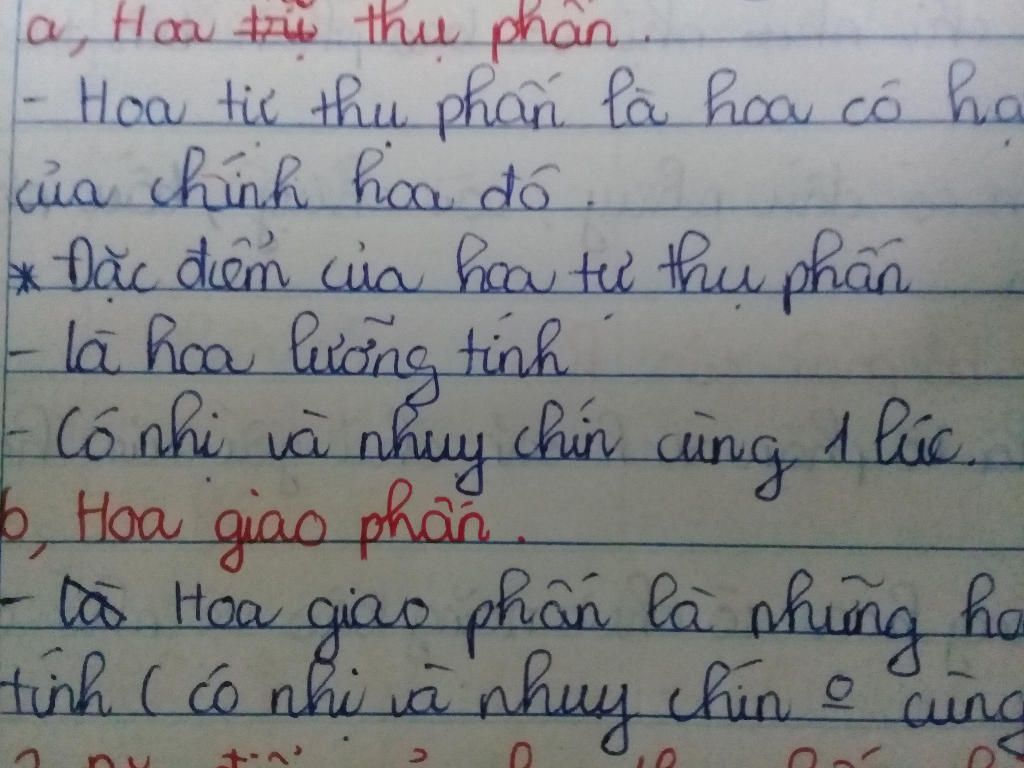 a, Hoa thụ phấn.
- Hoa tự thụ phấn là hoa có hạ
của chính hoa đó.
* Đặc điểm của hoa tự thụ phấn
- Là hoa lưỡng tính
- Có nhị và nhụy chín cùng 1 lúc.
b, Hoa giao phấn.
- Hoa giao phấn là những ho
tính (có nhị và nhụy chín o cùng